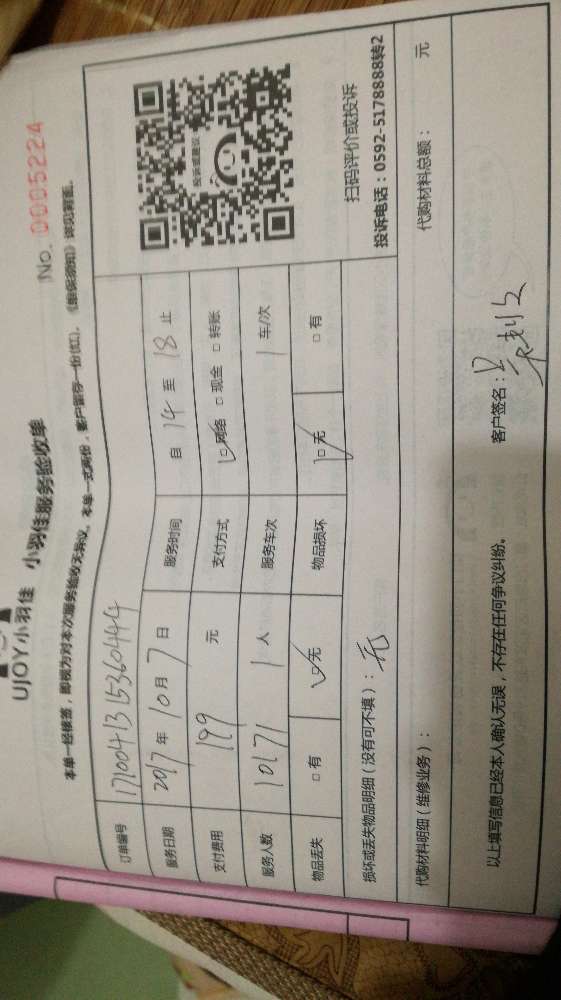 UJOY小羽佳 小羽佳服务验收单
No. 0005224
本单一经接签，即视为对本次服务验收无异议。本单一式两份，客户留存一份(红)。《维保须知》详见背面。
订单编号 1710041315360444
服务日期 2017年10月7日 服务时间 自 14 至 18 止
支付费用 199 元 支付方式 ☑网络 □现金 □转账
服务人数 10171 1 人 服务车次 1 车/次
物品丢失 □有 ☑无 物品损坏 ☑无 □有
扫码评价或投诉
投诉电话：0592-5178888转2
损坏或丢失物品明细（没有可不填）：无
代购材料明细（维修业务）： 代购材料总额： 元
以上填写信息已经本人确认无误，不存在任何争议纠纷。 客户签名：